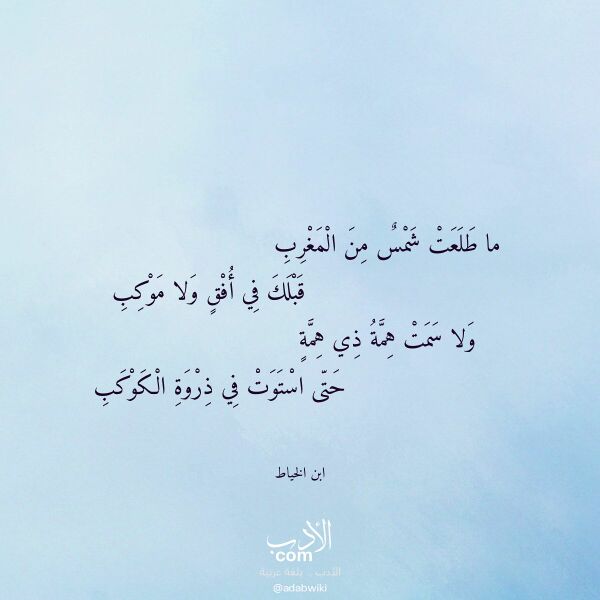 ما طَلَعَتْ شَمْسٌ مِنَ الْمَغْرِبِ
قَبْلَكَ فِي أُفْقٍ وَلا مَوْكِبِ
وَلا سَمَتْ هِمَّةُ ذِي هِمَّةٍ
حَتّى اسْتَوَتْ فِي ذِرْوَةِ الْكَوْكَبِ
ابن الخياط
الأدب
com
الأدب .. بلغة عربية
@adabwiki